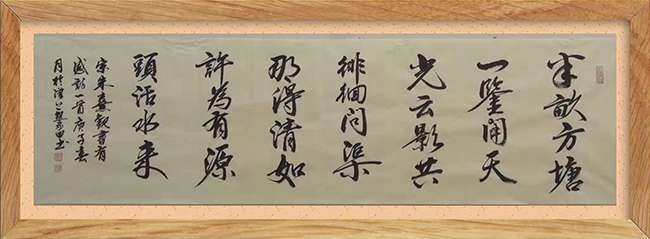 半畝方塘
一鑒開天
光云影共
徘徊問渠
那得清如
許為有源
頭活水来
宋朱熹觀書有
感詩一首庚子春
月於書